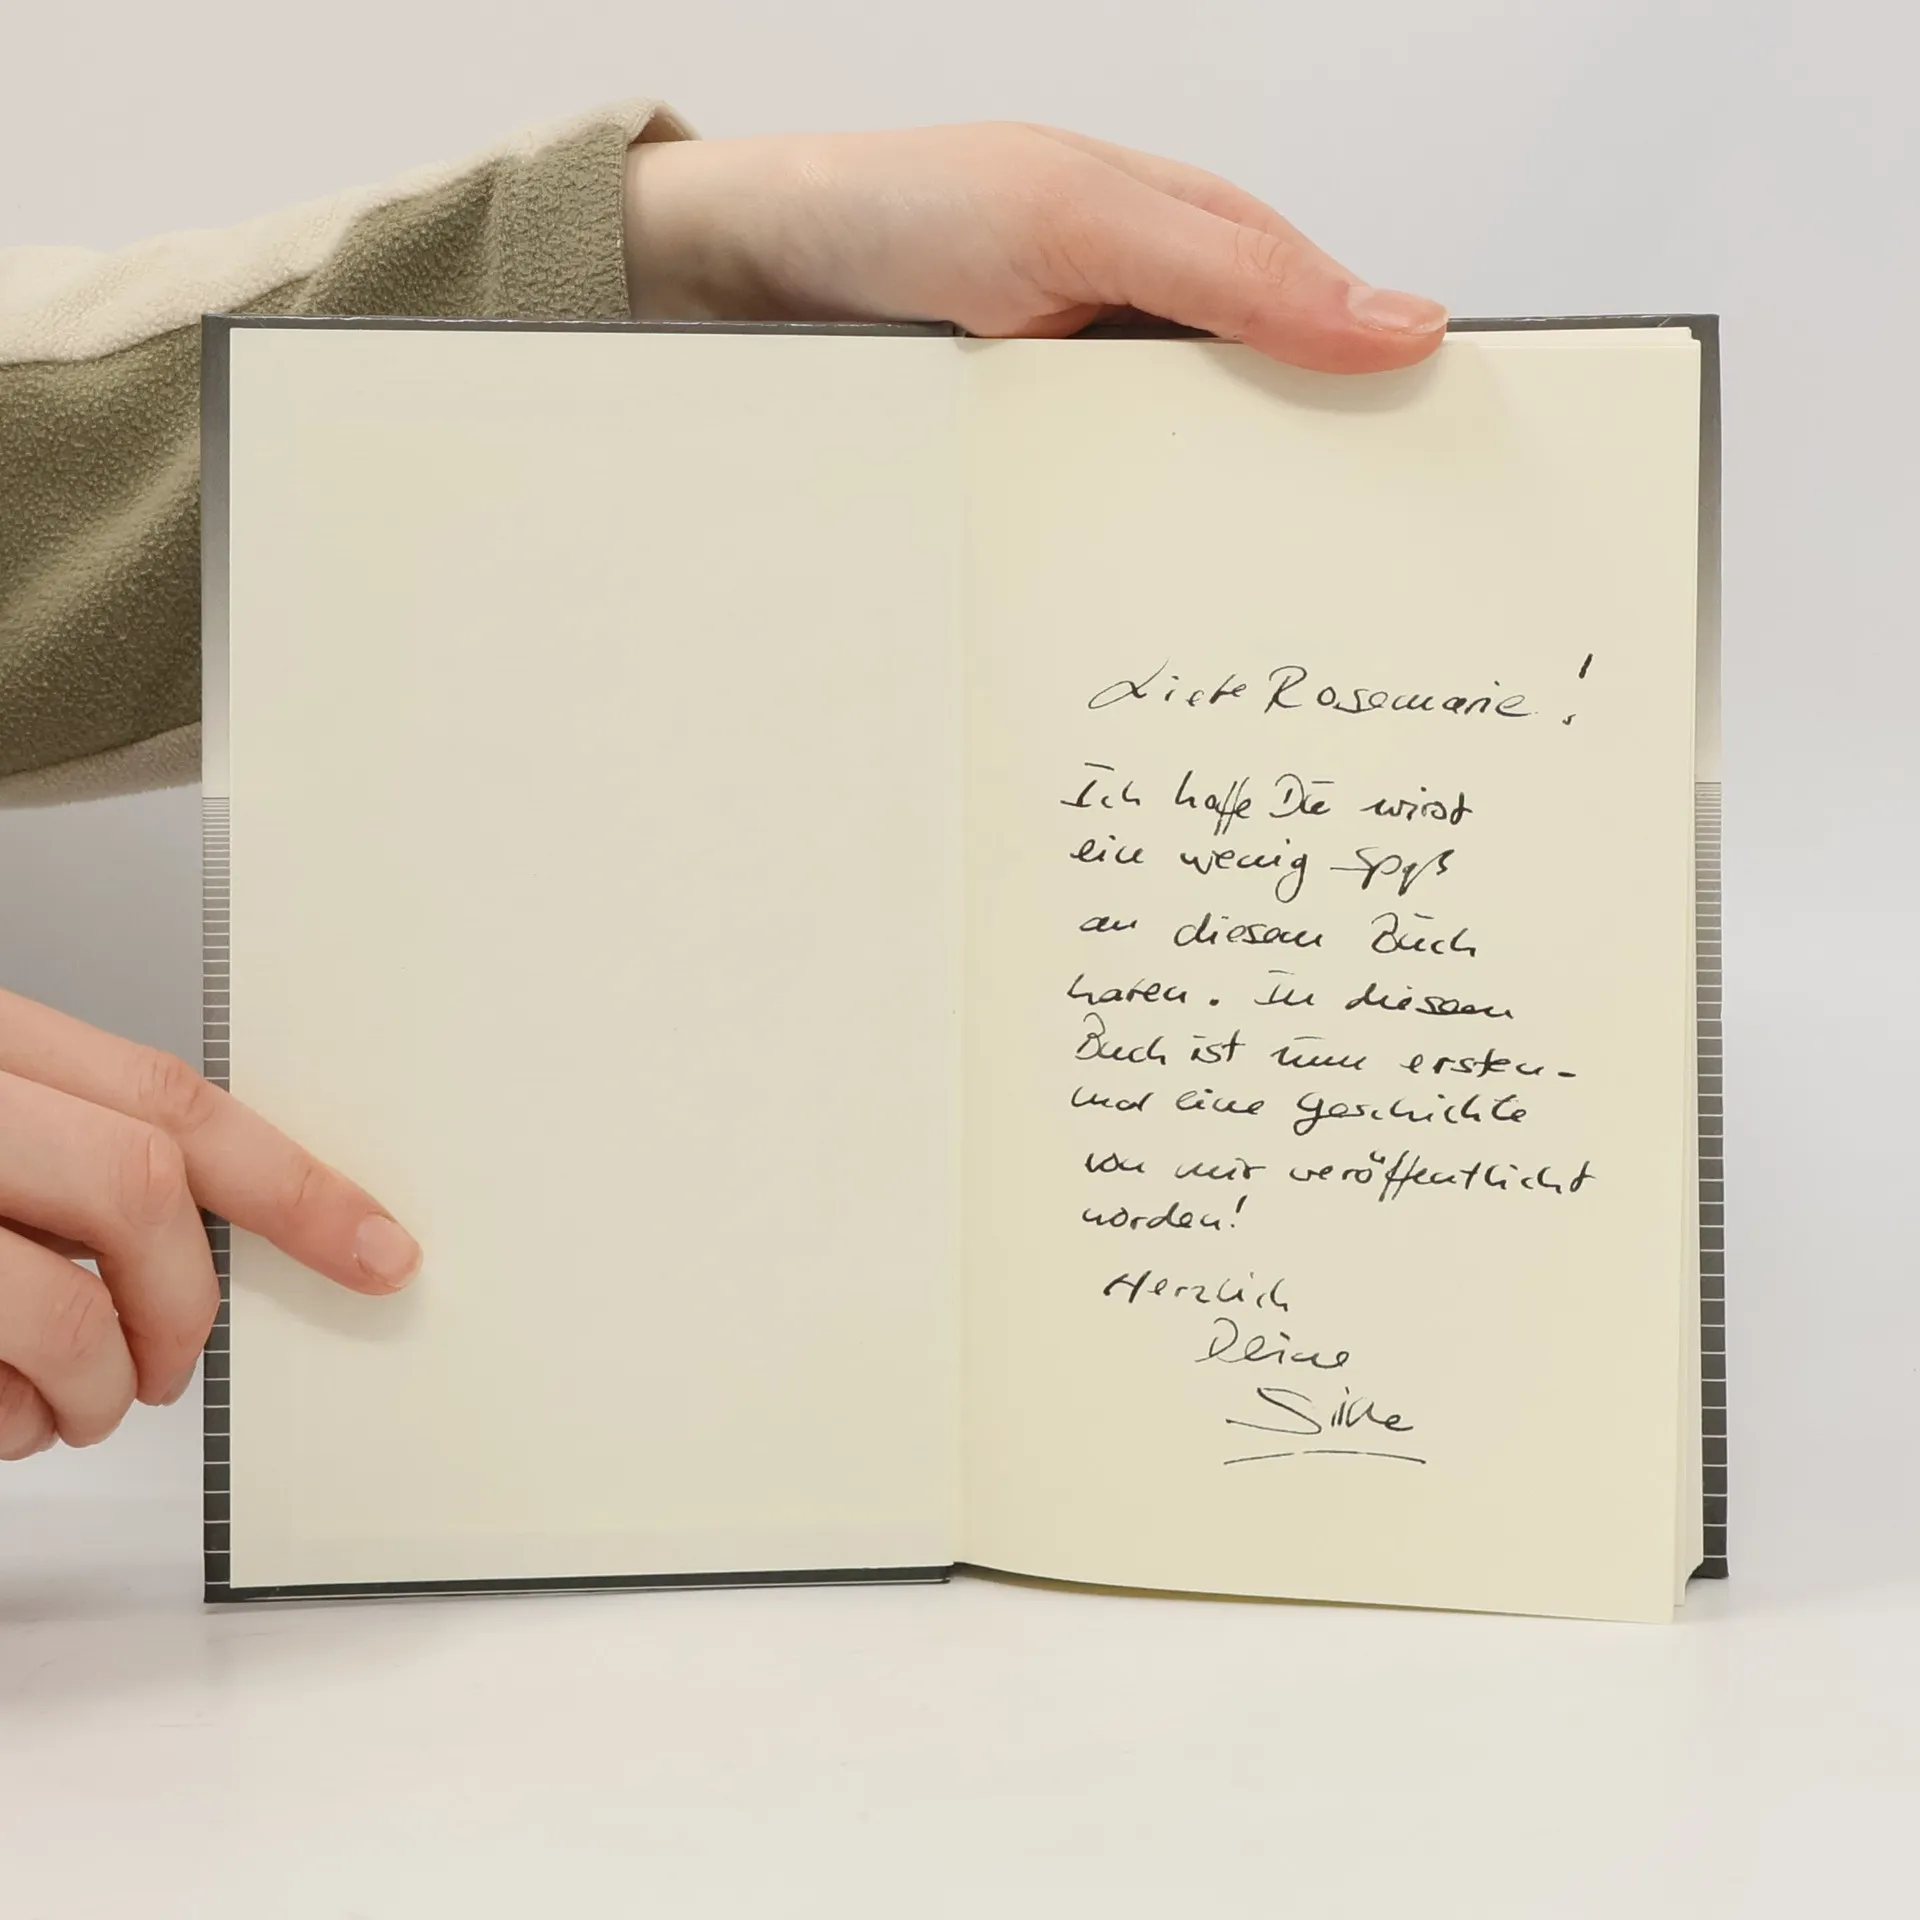 Liebe Rosemarie!
Ich hoffe Du wirst
ein wenig Spaß
an diesem Buch
haben. In diesem
Buch ist nun ersten-
mal eine Geschichte
von mir veröffentlicht
worden!
Herzlich
Deine
Silke